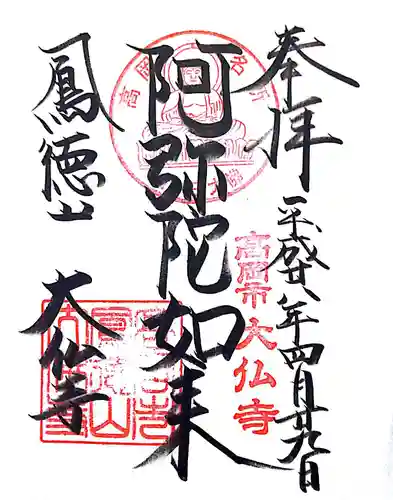 奉拝
平成廿八年四月廿九日
高岡市大仏寺
高岡名所
大佛
阿弥陀如来
鳳徳山
大仏寺